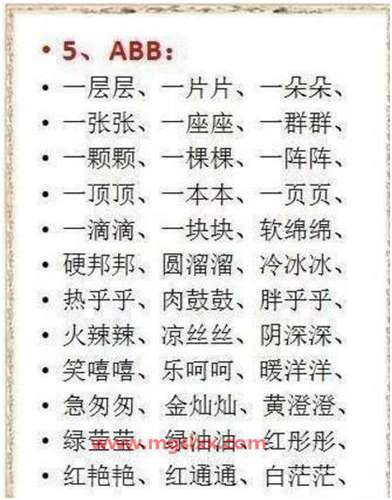 • 5、ABB：
• 一层层、一片片、一朵朵、
• 一张张、一座座、一群群、
• 一颗颗、一棵棵、一阵阵、
• 一顶顶、一本本、一页页、
• 一滴滴、一块块、软绵绵、
• 硬邦邦、圆溜溜、冷冰冰、
• 热乎乎、肉鼓鼓、胖乎乎、
• 火辣辣、凉丝丝、阴深深、
• 笑嘻嘻、乐呵呵、暖洋洋、
• 急匆匆、金灿灿、黄澄澄、
• 绿茫茫、绿油油、红彤彤、
• 红艳艳、红通通、白茫茫、